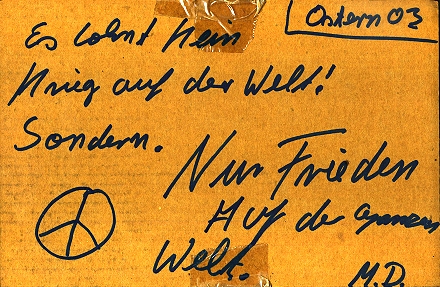 Ostern 03
Es lohnt kein
Krieg auf der Welt!
Sondern.
Nur Frieden
Auf der ganzen
Welt.
M.D.